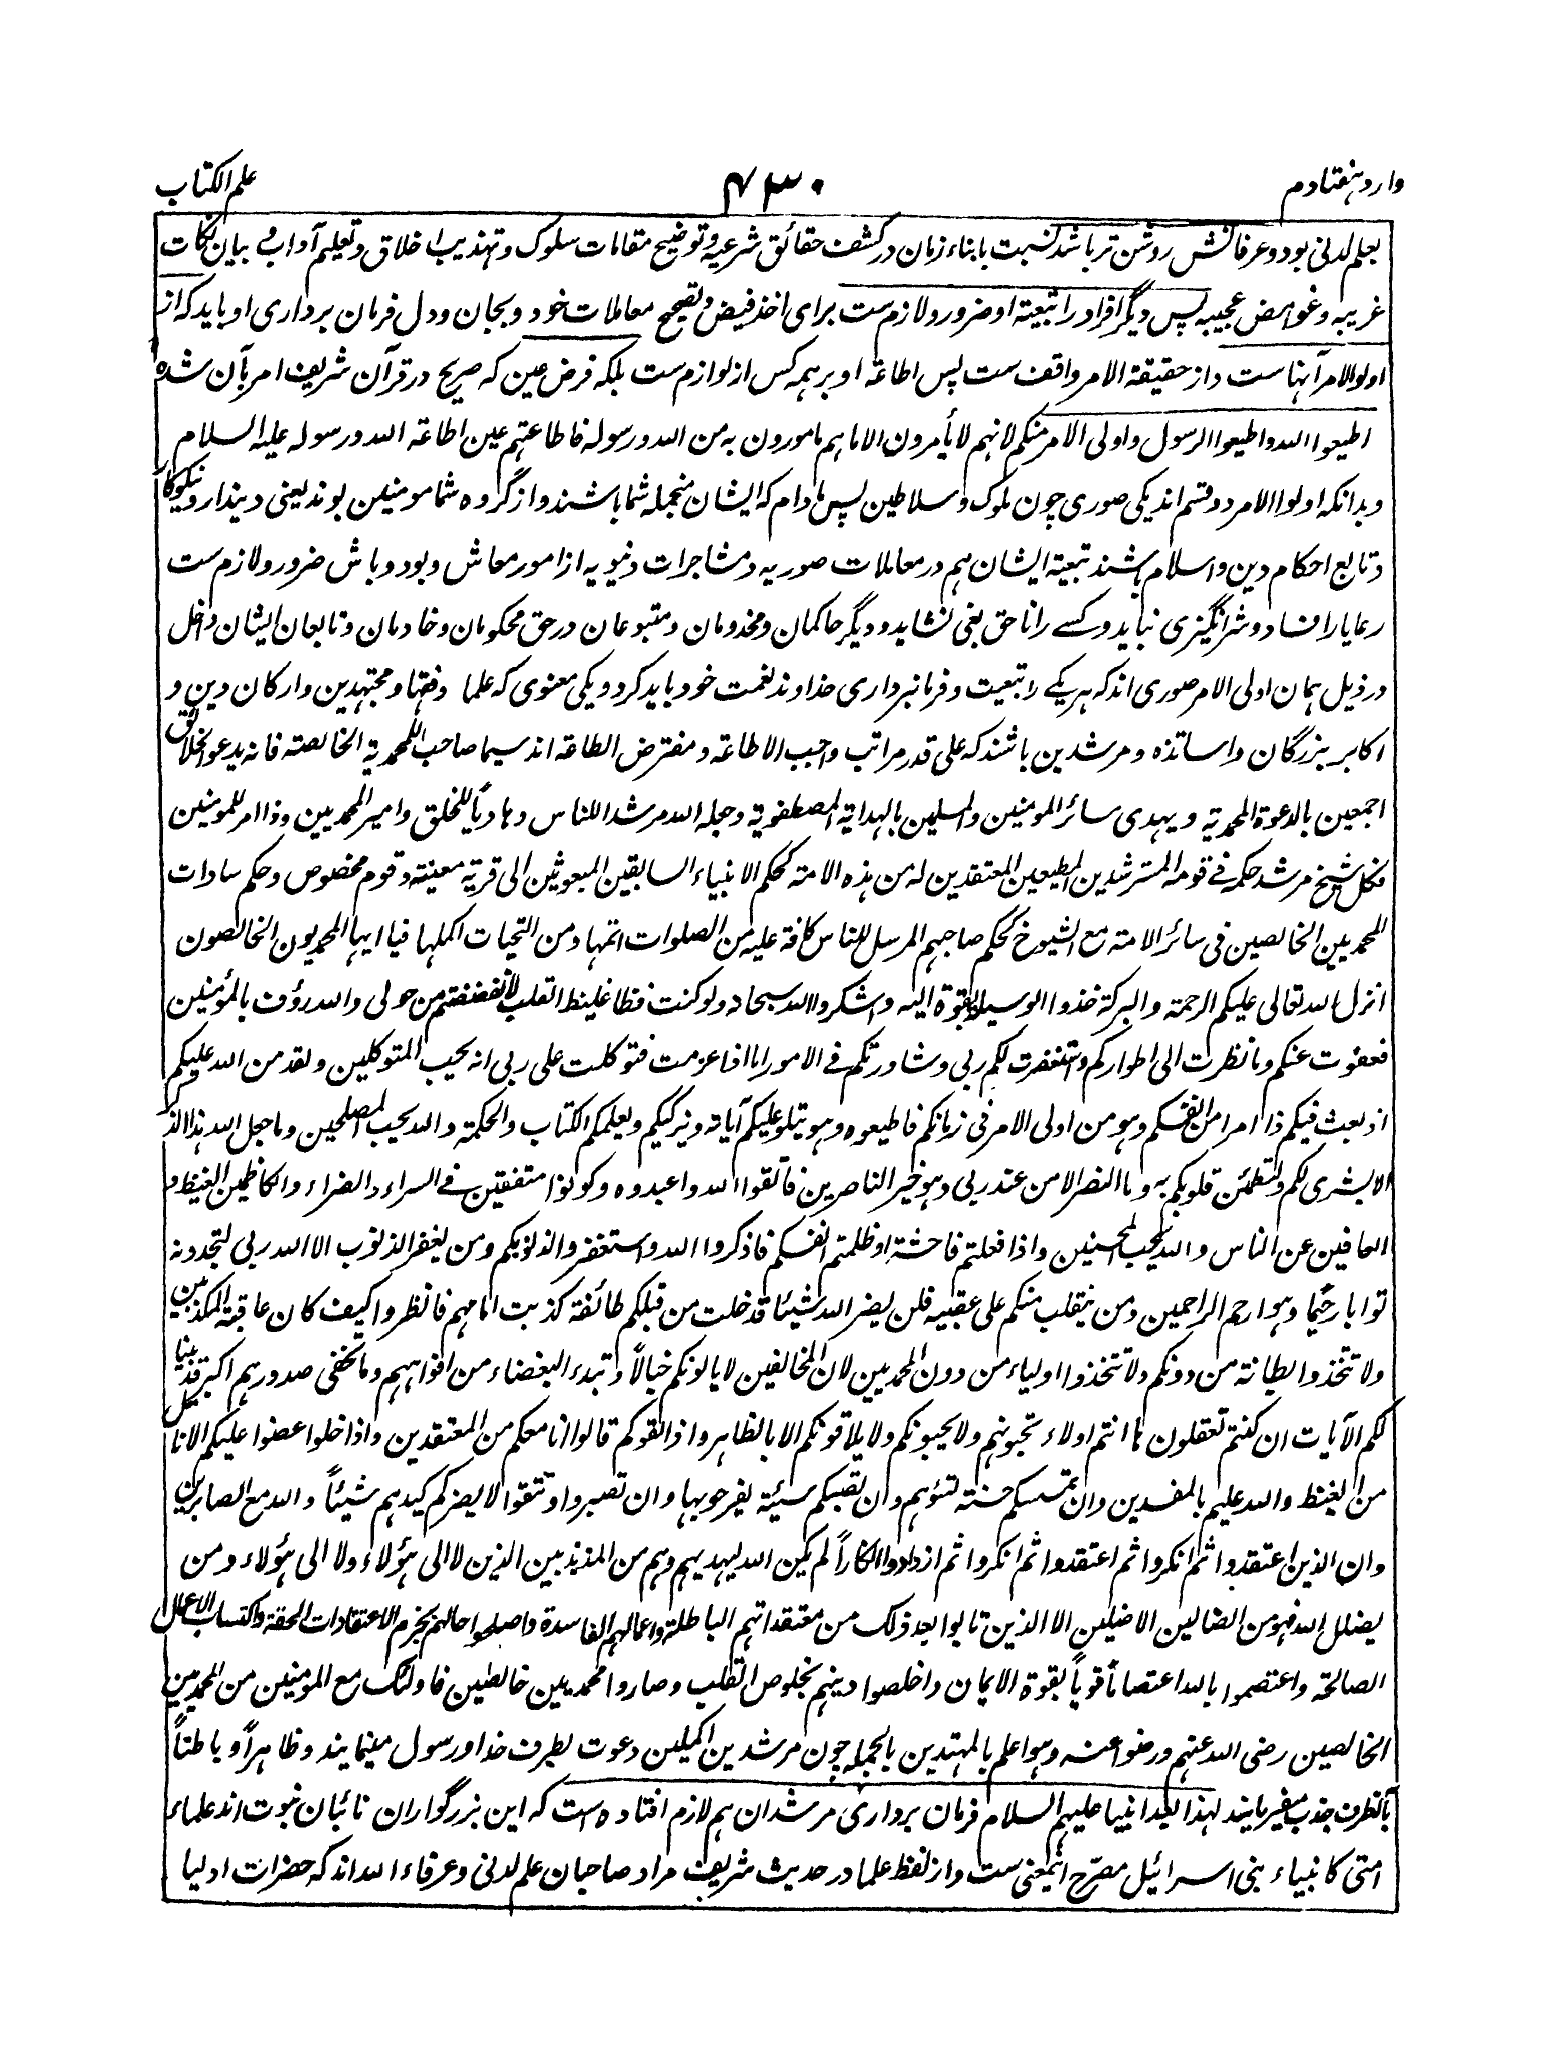 وارد هفتادم ۴۳۰ علم الکتاب
بعلم لدنی بود و عرفانش روشن تر باشد نسبت بابناء زمان در کشف حقائق شرعیه و توضیح مقامات سلوک و تهذیب اخلاق و تعلیم آداب و بیان نکات
غریبه و غوامض عجیبه پس دیگر افراد را تبعیة او ضرور و لازم ست برای اخذ فیض و تصحیح معاملات خود و بجان و دل فرمان برداری او باید که از
اولو الامر آنهاست و از حقیقة الامر واقف ست پس اطاعه او بر همه کس از لوازم ست بلکه فرض عین که صریح در قرآن شریف امر بآن شده
اطیعوا الله و اطیعوا الرسول و اولی الامر منکم لانهم لا یأمرون الا ما هم مامورون به من الله و رسوله فاطاعتهم عین اطاعه الله و رسوله علیه السلام
و بدانکه اولوا الامر دو قسم اند یکی صوری چون ملوک و سلاطین پس مادام که ایشان منجمله شما باشند و از گروه شما مومنین بوند یعنی دیندار و نیکوکار
و تابع احکام دین و اسلام باشند تبعیة ایشان هم در معاملات صوریه و مشاجرات دنیویه از امور معاش و بود و باش ضرور و لازم ست
رعایا را فساد و شر انگیزی نباید و کسے را ناحق بغی نشاید و دیگر حاکمان و مخدومان و متبوعان در حق محکومان و خادمان و تابعان ایشان داخل
در ذیل همان اولی الامر صوری اند که هر یکے را تبعیت و فرمانبرداری خداوند نعمت خود باید کرد و یکی معنوی که علما و فقها و مجتهدین و ارکان دین و
اکابر بزرگان و اساتذه و مرشدین باشند که علی قدر مراتب واجب الاطاعه و مفترض الطاعه اند سیما صاحب المحمدیة الخالصة فانه یدعو الخلائق
اجمعین بالدعوة المحمدیة و یهدی سائر المومنین والمسلمین بالهدایة المصطفویة و جعله الله مرشدا للناس و هادیاً للخلق و امیر المحمدیین و ذا امر للمومنین
فکل شیخ مرشد حکمه فی قومه المسترشدین المطیعین المعتقدین له من هذه الامة کحکم الانبیاء السابقین المبعوثین الی قریة معینة و قوم مخصوص و حکم سادات
المحمدیین الخالصین فی سائر الامة مع الشیوخ کحکم صاحبهم المرسل للناس کافة علیه من الصلوات اتمها و من التحیات اکملها فیا ایها المحمدیون الخالصون
انزل الله تعالی علیکم الرحمة والبرکة خذوا الوسیلة بقوة الیه واشکروا لله سبحانه ولو کنت فظا غلیظ القلب لانفضضتم من حولی والله رؤف بالمؤمنین
فعفوت عنکم وما نظرت الی اطوارکم واستغفرت لکم ربی و شاورتکم فی الامور اما اذا عزمت فتوکلت علی ربی انه یحب المتوکلین و لقد من الله علیکم
اذ بعث فیکم ذا امر من انفسکم و هو من اولی الامر فی زمانکم فاطیعوه و هو یتلو علیکم آیاته و یزکیکم و یعلمکم الکتاب والحکمة والله یحب المصلحین و ما جعل الله هذا الذ
الا بشری لکم ولتطمئن قلوبکم به وما النصر الا من عند ربی و هو خیر الناصرین فاتقوا الله واعبدوه وکونوا متفقین فی السراء والضراء والکاظمین الغیظ و
العافین عن الناس والله یحب المحسنین واذا فعلتم فاحشة او ظلمتم انفسکم فاذکروا الله واستغفروا لذنوبکم و من یغفر الذنوب الا الله ربی لتجدونه
توابا رحیما و هو ارحم الراحمین و من ینقلب منکم علی عقبیه فلن یضر الله شیئا قد خلت من قبلکم طائفة کذبت امامهم فانظروا کیف کان عاقبة المکذبین
ولا تتخذوا بطانة من دونکم ولا تتخذوا اولیاء من دون المحمدیین لان المخالفین لا یالونکم خبالاً و تبدء البغضاء من افواههم وما تخفی صدورهم اکبر قد بینا
لکم الآیات ان کنتم تعقلون ها انتم اولاء تحبونهم ولا یحبونکم ولا یلاقونکم الا بالظاهر واذا لقوکم قالوا انا معکم من المعتقدین واذا خلوا عضوا علیکم الانامل
من الغیظ والله علیم بالمفسدین وان تمسسکم حسنة تسؤهم وان تصبکم سیئة یفرحوا بها وان تصبروا و تتقوا لا یضرکم کیدهم شیئاً والله مع الصابرین
وان الذین اعتقدوا ثم انکروا ثم اعتقدوا ثم انکروا ثم ازدادوا انکاراً لم یکن الله لیهدیهم و هم من المذبذبین الذین لا الی هؤلاء ولا الی هؤلاء و من
یضلل الله فهو من الضالین الاضلین الا الذین تابوا بعد ذلک من معتقداتهم الباطلة واعمالهم الفاسدة واصلحوا حالهم بجزم الاعتقادات الحقة واکتساب الاعمال
الصالحة واعتصموا بالله اعتصاماً قویاً بقوة الایمان واخلصوا دینهم بخلوص القلب و صاروا محمدیین خالصین فاولئک مع المومنین من المحمدیین
الخالصین رضی الله عنهم و رضوا عنه و هو اعلم بالمهتدین بالجمله چون مرشدین اکملین دعوت بطرف خدا و رسول مینمایند و ظاهراً و باطناً
بآنطرف جذب میفرمایند لهذا بعد انبیا علیهم السلام فرمان برداری مرشدان هم لازم افتاده است که این بزرگواران نائبان نبوت اند علماء
امتی کانبیاء بنی اسرائیل مصرّح اینمعنی ست و از لفظ علما در حدیث شریف مراد صاحبان علم لدنی و عرفاء الله اند که حضرات اولیا